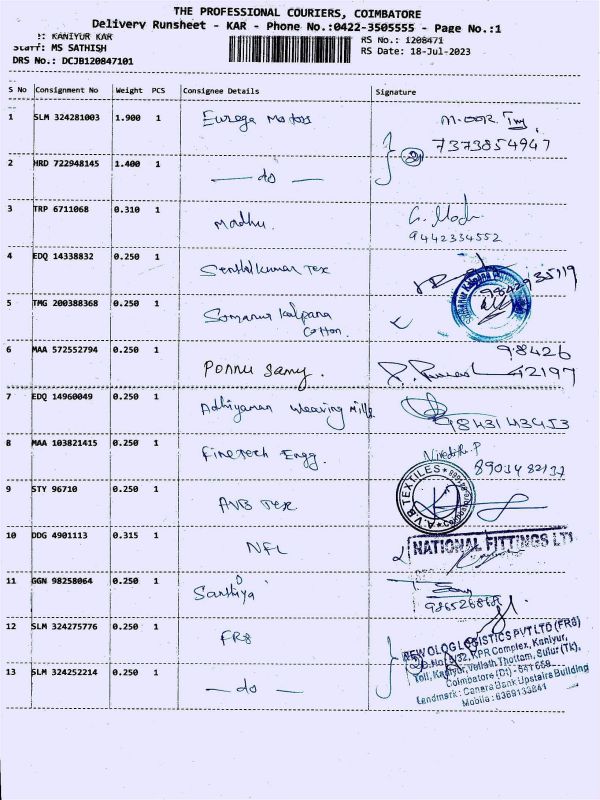 THE PROFESSIONAL COURIERS, COIMBATORE
Delivery Runsheet - KAR - Phone No.:0422-3505555 - Page No.:1
: KANIYUR KAR
RS No.: 1208471
Staff: MS SATHISH
RS Date: 18-Jul-2023
DRS No.: DCJB120847101
S No Consignment No Weight PCS Consignee Details Signature
1 SLM 324281003 1.900 1 Eurega Motors
7373854947
2 HRD 722948145 1.400 1 — do —
3 TRP 6711068 0.310 1 Madhu.
9442334552
4 EDQ 14338832 0.250 1 Senthilkumar Tex
5 TMG 200388368 0.250 1 Somanur Kalpana
Cotton.
6 MAA 572552794 0.250 1 Ponnu Samy.
98426
42197
7 EDQ 14960049 0.250 1 Adhiyaman Weaving Mills
9843143453
8 MAA 103821415 0.250 1 Finetech Engg.
9 STY 96710 0.250 1 AVB Tex
A.V.B TEXTILES
10 DDG 4901113 0.315 1 NFL
NATIONAL FITTINGS LT
11 GGN 98258064 0.250 1 Santhiya
12 SLM 324275776 0.250 1 FR8
13 SLM 324252214 0.250 1 — do —
NEWOLOG LOGISTICS PVT LTD (FR8)
KPR Complex, Kaniyur,
Toll, Kaniyur, Vellath Thottam, Sulur (Tk),
Coimbatore (Dt) - 641 659
Landmark: Canara Bank Upstairs Building
Mobile: 6369133841